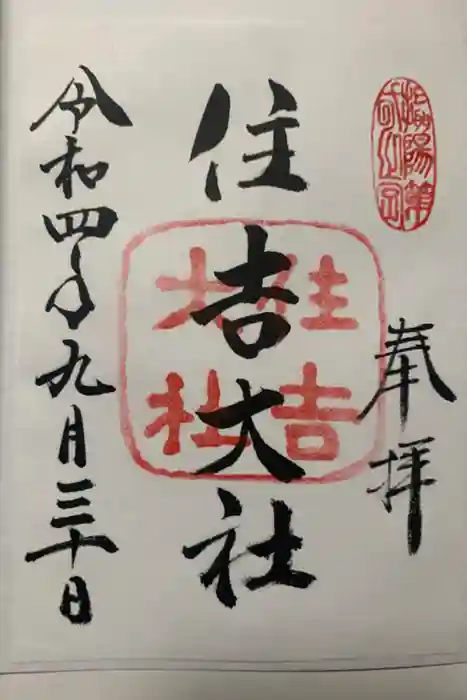 攝陽第
奉拝
住吉大社
住吉
大社
令和四年九月三十日